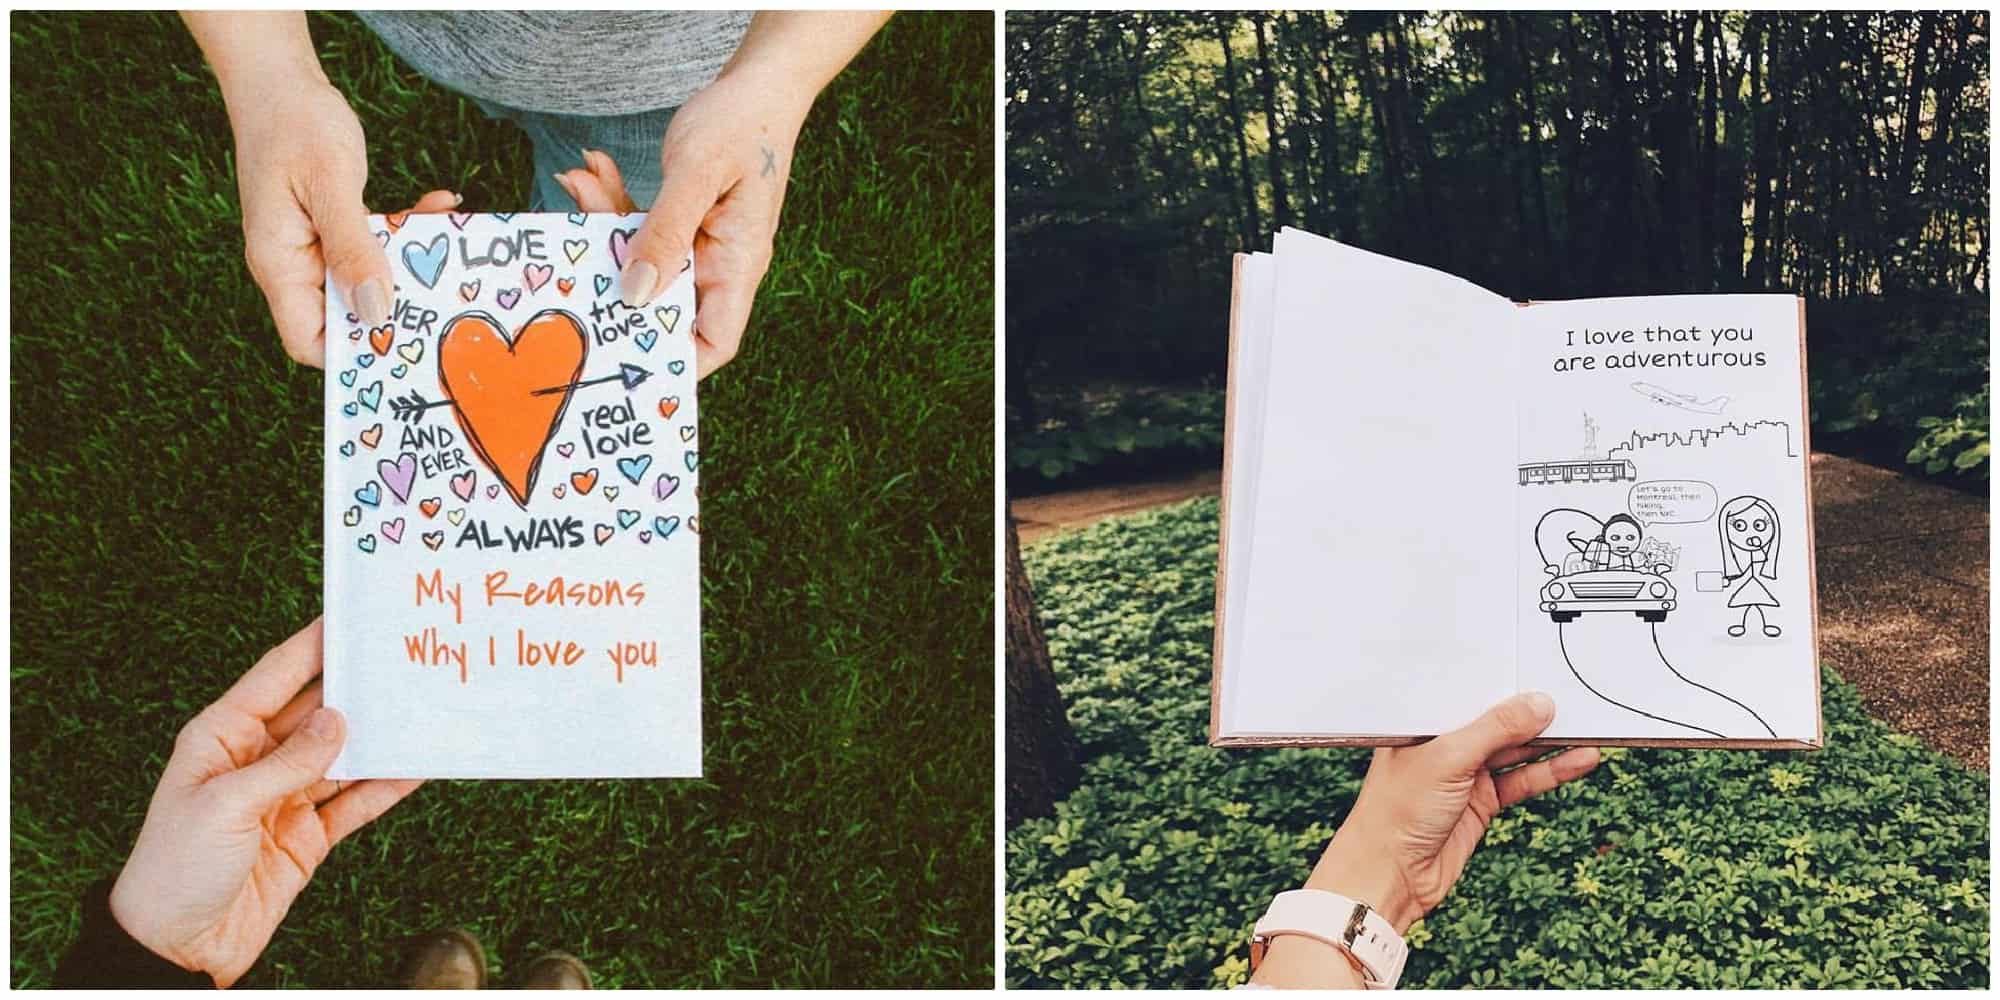 LOVE
true
love
real
love
AND
EVER
ALWAYS
My Reasons
Why I love you
I love that you
are adventurous
Let's go to
Montreal, then
hiking,
then NYC.